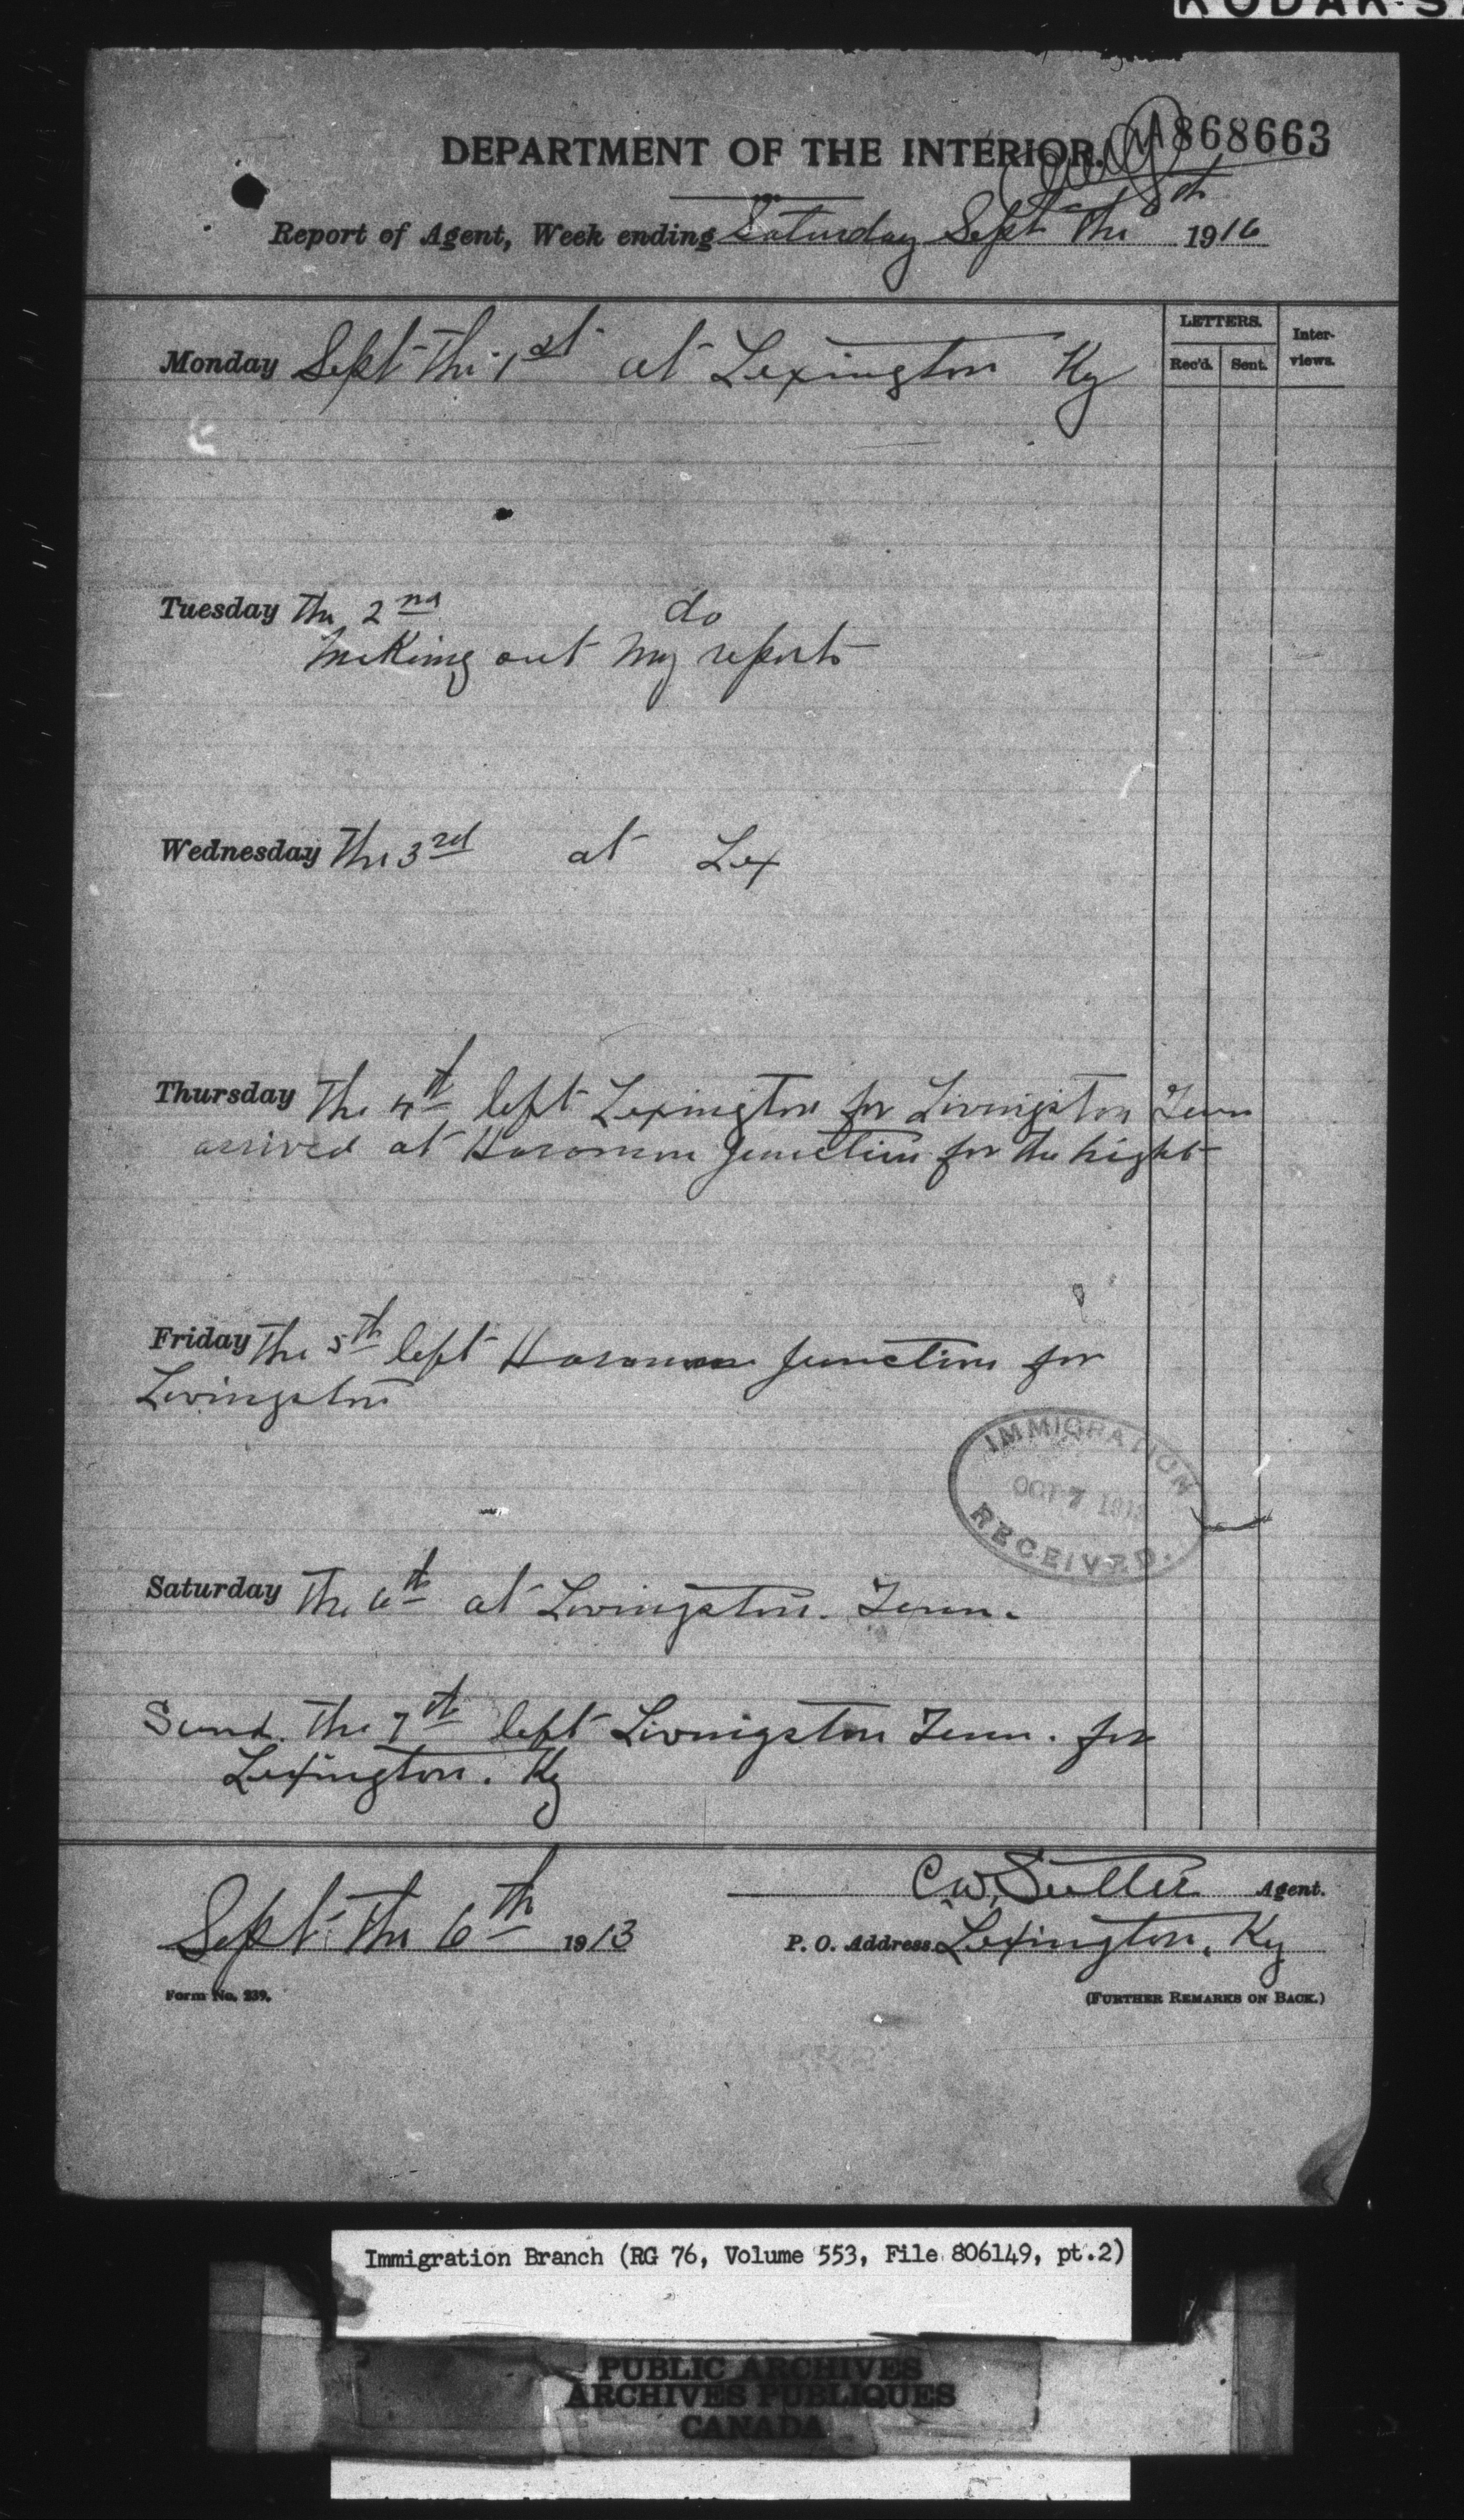 DEPARTMENT OF THE INTERIOR.
868663
Report of Agent, Week ending Saturday Sept The 8th 1916
LETTERS.
Rec'd. Sent.
Inter-
views.
Monday Sept The 1st at Lexington Ky
Tuesday The 2nd do
making out my reports
Wednesday The 3rd at Lex
Thursday The 4th left Lexington for Livingston Tenn
arrived at Junction for the night
Friday The 5th left Junction for
Livingston
IMMIGRATION
OCT 7 1913
RECEIVED.
Saturday The 6th at Livingston. Tenn.
Sund. The 7th left Livingston Tenn. for
Lexington. Ky
C W, Agent.
Sept. The 6th 1913
P. O. Address Lexington, Ky
Form No. 239.
(FURTHER REMARKS ON BACK.)
Immigration Branch (RG 76, Volume 553, File 806149, pt.2)
PUBLIC ARCHIVES
ARCHIVES PUBLIQUES
CANADA